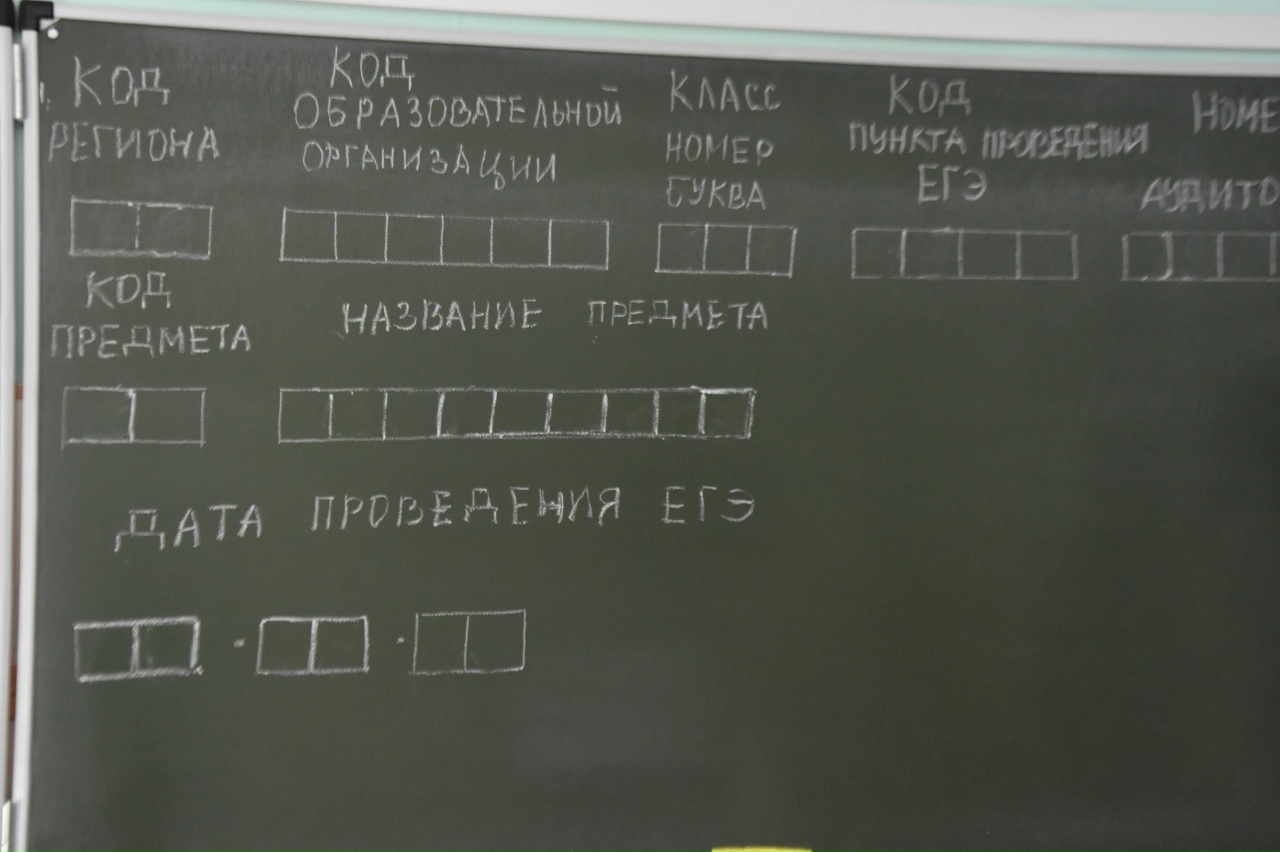 КОД
РЕГИОНА
КОД
ОБРАЗОВАТЕЛЬНОЙ
ОРГАНИЗАЦИИ
КЛАСС
НОМЕР
БУКВА
КОД
ПУНКТА ПРОВЕДЕНИЯ
ЕГЭ
НОМЕ
АУДИТО
КОД
ПРЕДМЕТА
НАЗВАНИЕ ПРЕДМЕТА
ДАТА ПРОВЕДЕНИЯ ЕГЭ